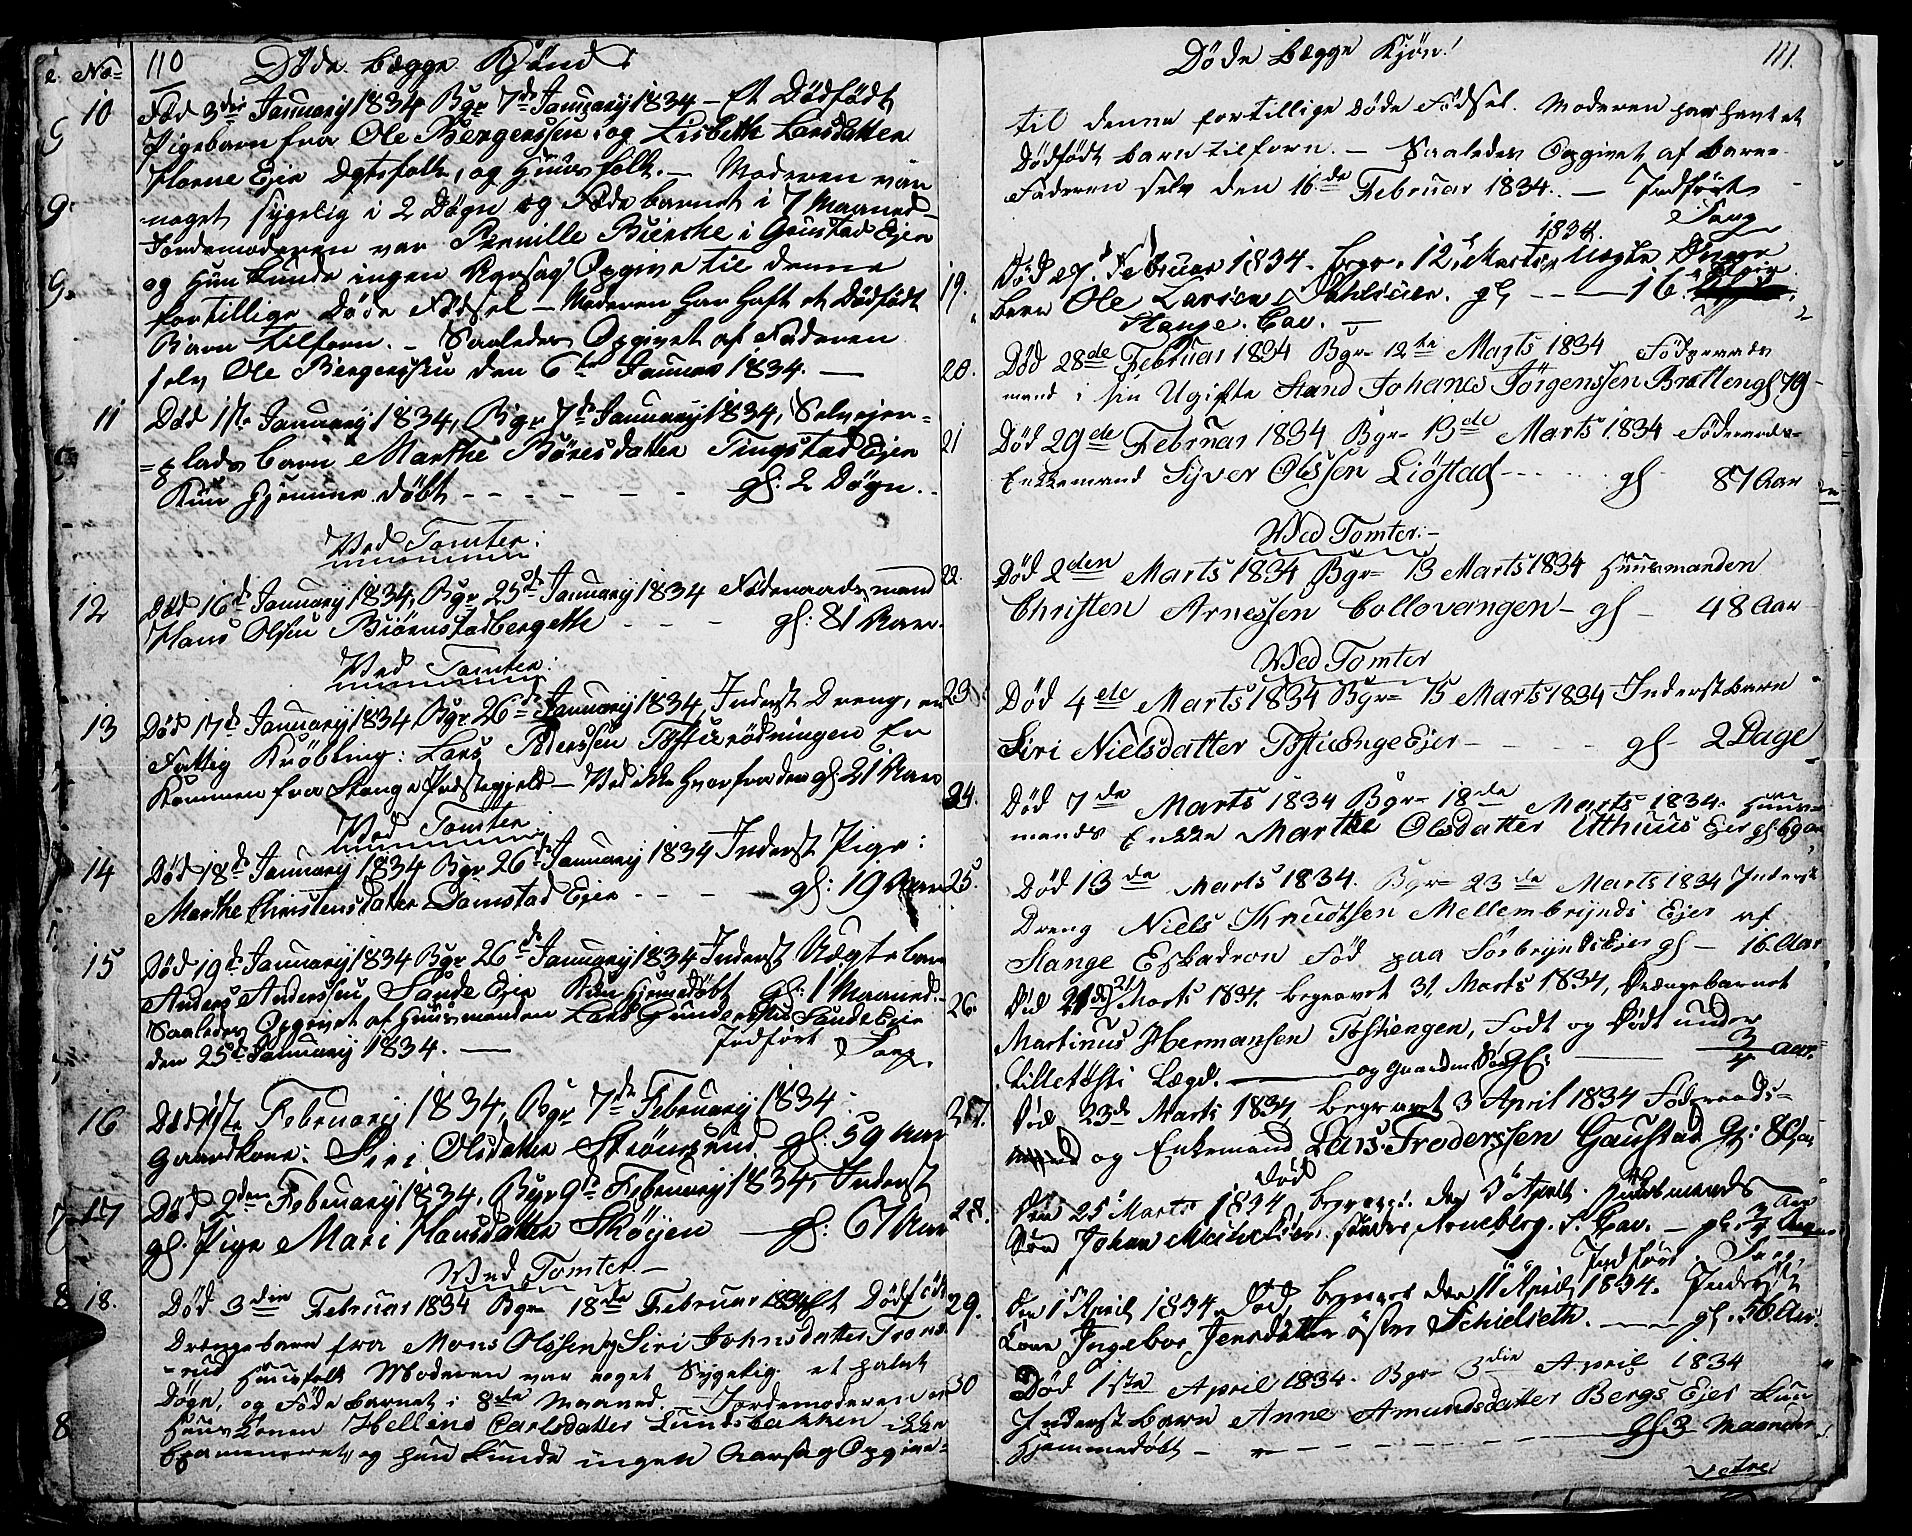 No= 110 Døde begge Kjønd
10 Fød 3die January 1834 Bgr 7de January 1834 – Et Dødfødt
Pigebarn fra Ole Bergerssen og Lisbeth Larsdatter
Horne Ejer Ægtefolk, og Huusfolk. – Moderen var
noget sygelig i 2 Døgn og Føde barnet i 7 Maaned
Jordemoderen var Pernille Bierche i Gaustad Ejer
og Hun kunde ingen Aarsag Opgive til denne
fortillige Døde Fødsel – Moderen har haft et Dødfødt
Barn tilforn. – Saaledes Opgivet af Faderen
selv Ole Bergerssen den 6te Januar 1834. –
11 Død 1ste January 1834, Bgr 7de January 1834, Selvejer=
=plads barn Marthe Börresdatter Tingstad Ejer
Kun hjemme döbt - - - - - - gl: 2 Døgn.
Ved Tomter:
12 Død 16de January 1834, Bgr 25de January 1834 Föderaadsmand
Hans Olsen Biørnstadbergeth - - - gl: 81 Aar.
Ved Tomter:
13 Død 17de January 1834, Bgr 26de January 1834, Inderst Dreng, en
Fattig Krøbling: Lars Pederssen Er
Kommen fra Stange Præstegjeld – Ved ikke hvorfra den gl: 21 Aar
Ved Tomter
14 Død 18de January 1834 Bgr 26de January 1834 Inderst Pige:
Marthe Christensdatter Samstad Ejer - - - gl: 19 Aar
15 Død 19de January 1834 Bgr 26de January 1834 Inderst Uægte barn
Anders Anderssen Sande Ejer Kun hjemdøbt gl: 1 Maaned.
Saaledes Opgivet af Huusmanden Lars Gunderssen Sande Ejer
den 25de January 1834. — Indført
16 Død 1ste February 1834, Bgr 7de February 1834.
Gaardkone: Siri Olsdatter Strömsrud gl: 59 Aar
17 Død 2den February 1834, Bgr 9de February 1834, Inderst
gl. Pige Mari Hansdatter Skøyen — gl: 67 Aar
Wed Tomter: –
18. Død 3die Februar 1834 Bgr= 18de Februar 1834 Et Dødfødt
Drengebarn fra Mons Olssen og Siri Johnsdatter Trons
=rud Huusfolk Moderen var noget Sygelig et halvt
Døgn, og Föde barnet i 8de Maaned. – Jordemoderen er
Huus Konen Hellene Carlsdatter Lundsbakken ikke
Examineret, og hun kunde ingen Aarsag Opgive=
Døde begge Kjøn! 111.
til denne fortillige døde Födsel. Moderen har havt et
Dødfödt barn tilforn. – Saaledes Opgivet af barne=
Faderen selv den 16de Februar 1834. – Indført
1834.
19. Død 27d Februar 1834. begr. 12te Marts, Uægte
barn Ole Larsen Dahlsveen. gl - - - 16
Stange. Cav. –
20. Død 28de Februar 1834 Bgr= 12te Marts 1834 Föderaads
mand i sin Ugifte Stand Johanes Jörgenssen Bratten gl 79
21 Död 29de Februar 1834 Bgr= 13de Marts 1834 Föderaads=
Enkemand Syver Olssen Liöstad - - - gl - 87 Aar
Wed Tomter: –
22. Död 2den Marts 1834 Bgr= 13 Marts 1834 Huusmanden
Christen Arnessen Collovengen – gl – 48 Aar
Wed Tomter
23. Död 4de Marts 1834 Bgr= 15 Marts 1834 Inderst barn
Siri Nielsdatter Tostiengeejer - - - - - gl - 2 Dage
24. Död 7de Marts 1834 Bgr= 18de Marts 1834. Huus=
mands Enke Marthe Olsdatter Utthuus Ejer gl: 69 aar
25. Död 13de Marts 1834. Bgr= 23de Marts 1834 Inderst
Dreng Niels Knudtsen Mellembrynds Ejer af
Stange Eskadron Föd paa Sörbrynds Ejer gl – 16 Aar
26. Död 21de Marts 1834. begravet 31 Marts 1834, Drengebarnet
Martinus Hermansen Tostiengen, Födt og Dödt under
Lilletösti Lægd. — og Gaardmands Sön gl: 3/4 aar.
27. Död 23de Marts 1834 begravet 3 April 1834 Föderaads=
og Enkemand Lars Frederssen Gaustad gl: 80 Aar
Död
28. Den 25 Marts 1834 begravet den 3 April.
Søn Johan søndre Arneberg. S. Cav. — gl. 3/4 Aar
Indført
29. Den 1ste April 1834 Død, begravet den 11 April 1834. Inderst
Kone Ingebor Jensdatter östre Schielseth. — gl. 56 Aar
30 Död 1ste April 1834. Bgr= 3die April 1834
Inderst barn Anne Amundsdatter Bergs Ejer kun
Hjemmedøbt – - - - - - - - - gl. 3 Maaneder